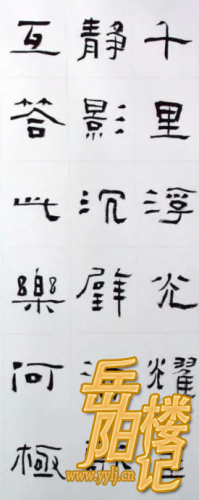 千里浮光耀
靜影沉璧
互答此樂何極
岳阳楼记
www.yylj.cn